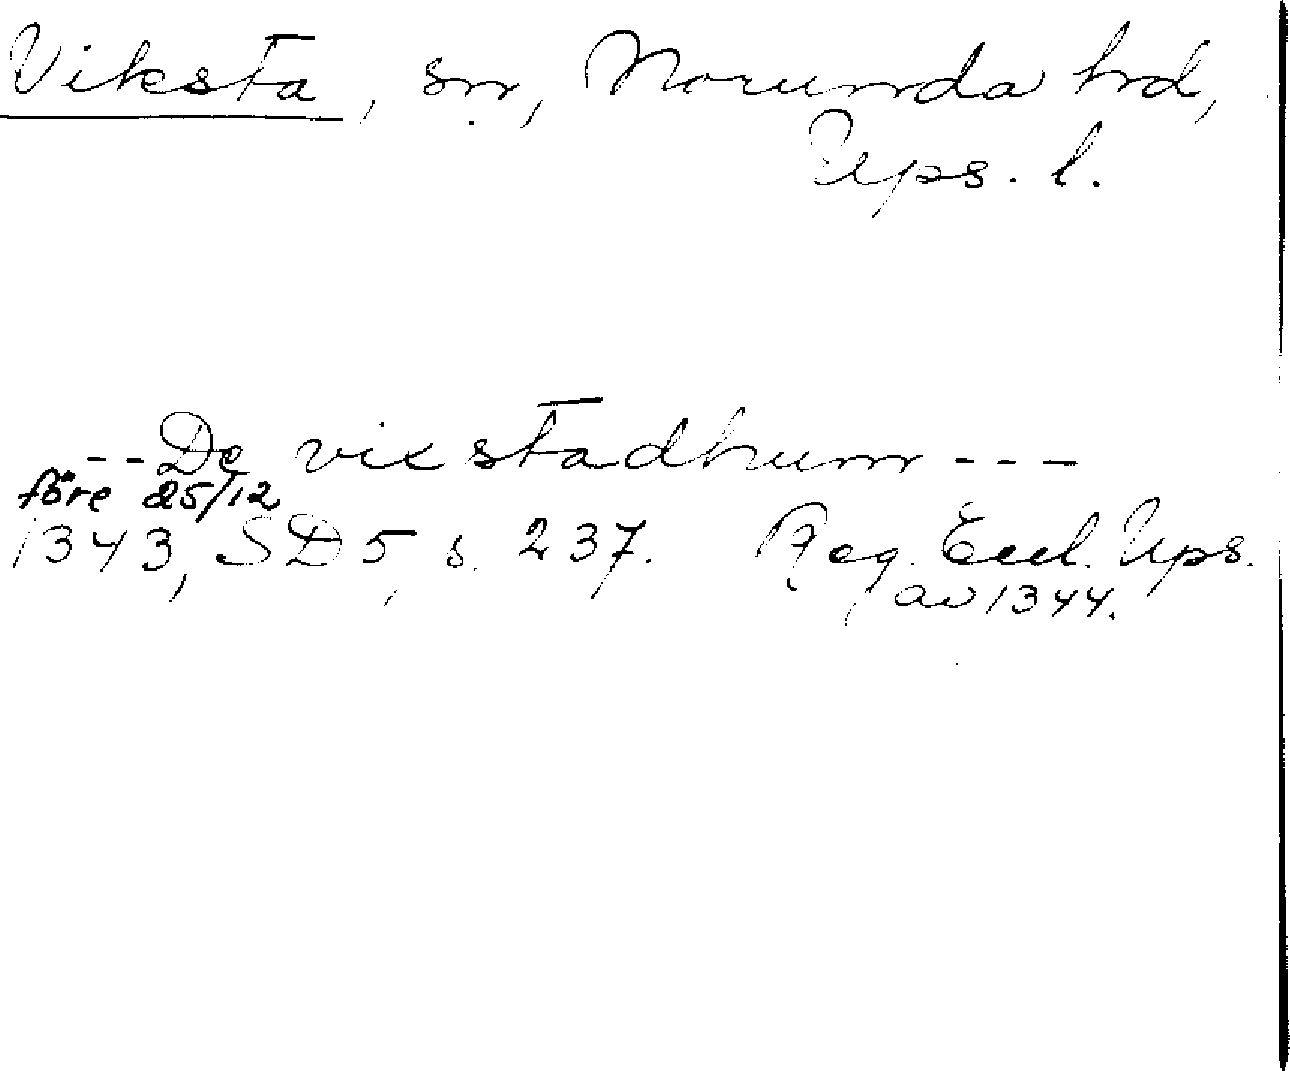 Viksta, sn, Norunda hd,
Ups. l.
-- De vixstadhum ---
före 25/12
1343, SD 5, s. 237. Reg. Eccl. Ups.
av 1344.